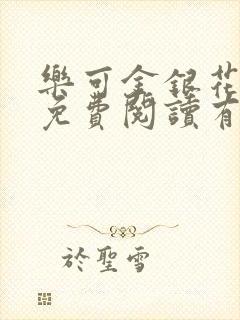 樂可金銀花
免費閱讀有
於聖雪